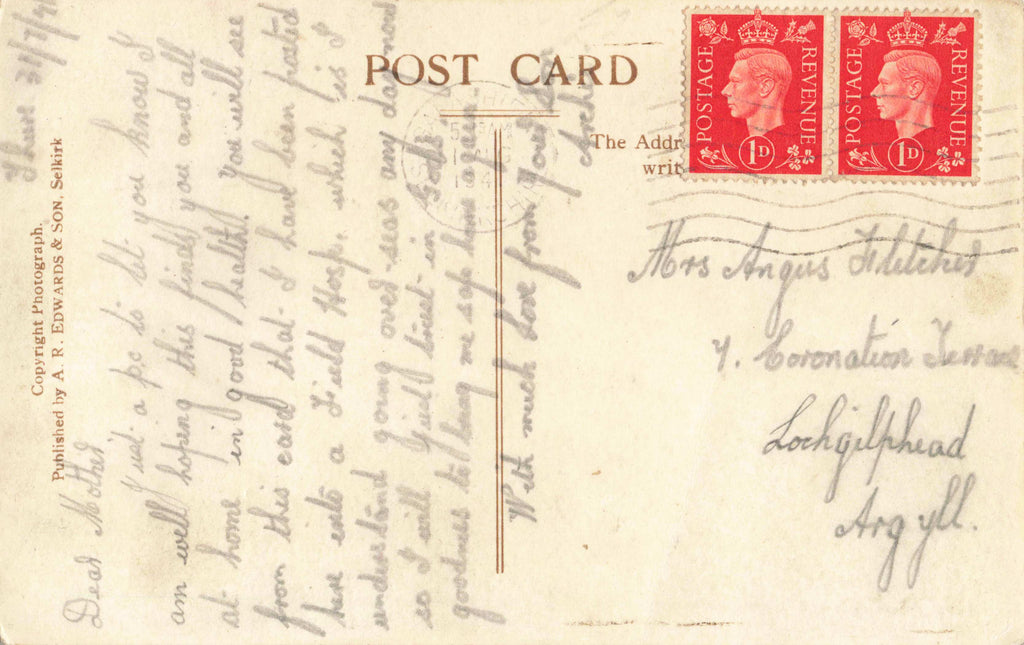 POST CARD
Copyright Photograph.
Published by A. R. EDWARDS & SON, Selkirk
The Addr
writ
POSTAGE REVENUE
1D
POSTAGE REVENUE
1D
Thur 31/7/41
Dear Mother
Just a p.c. to let you know I
am well hoping this finds you and all
at home in good health. You will see
from this card that I have been posted
here into a Field Hosp. which is I
understand going over-seas any day now
so I will just trust in God's
goodness to bring me safe home again.
With much love from your son
Archie
Mrs Angus Fletcher
7. Coronation Terrace
Lochgilphead
Argyll.